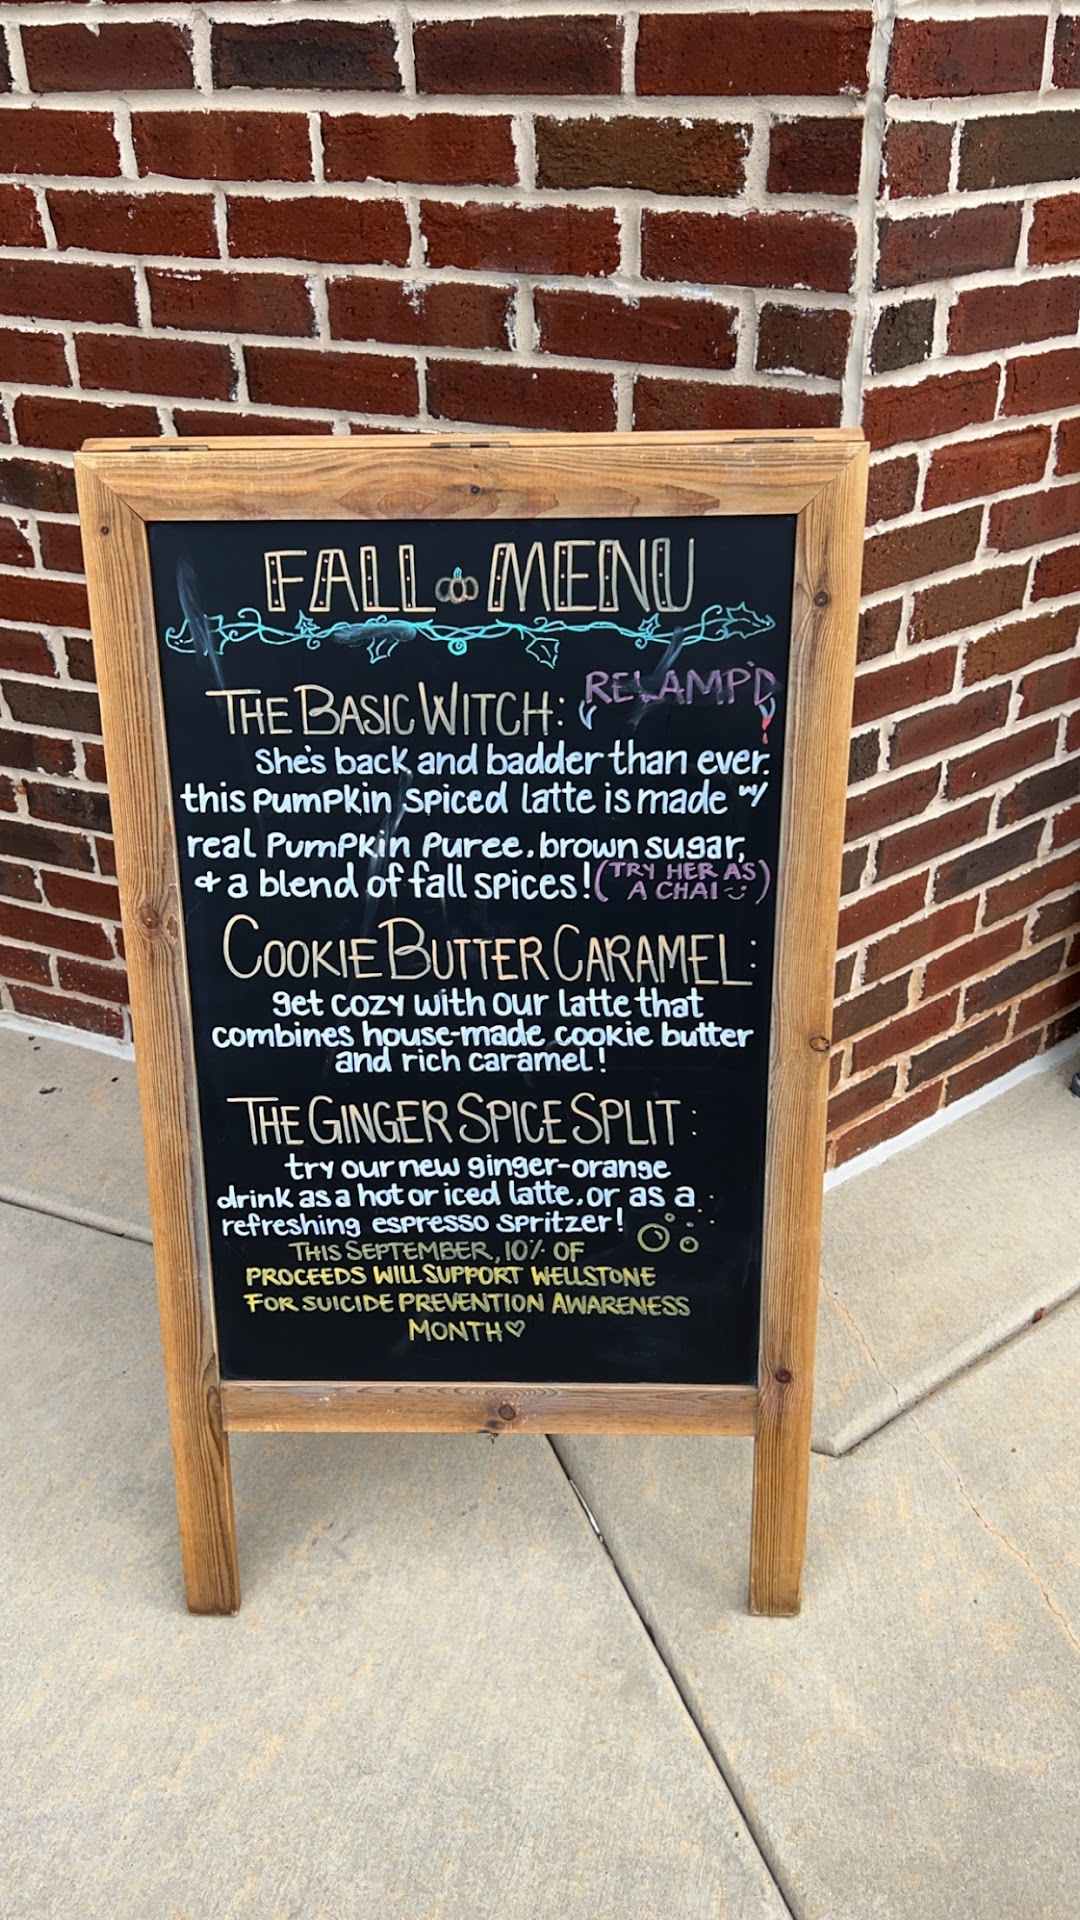 FALL MENU
THE BASIC WITCH: REVAMP'D
she's back and badder than ever.
this pumpkin spiced latte is made w/
real pumpkin puree, brown sugar,
+ a blend of fall spices! (TRY HER AS
A CHAI :)
COOKIE BUTTER CARAMEL:
get cozy with our latte that
combines house-made cookie butter
and rich caramel!
THE GINGER SPICE SPLIT:
try our new ginger-orange
drink as a hot or iced latte, or as a
refreshing espresso spritzer!
THIS SEPTEMBER, 10% OF
PROCEEDS WILL SUPPORT WELLSTONE
FOR SUICIDE PREVENTION AWARENESS
MONTH♡